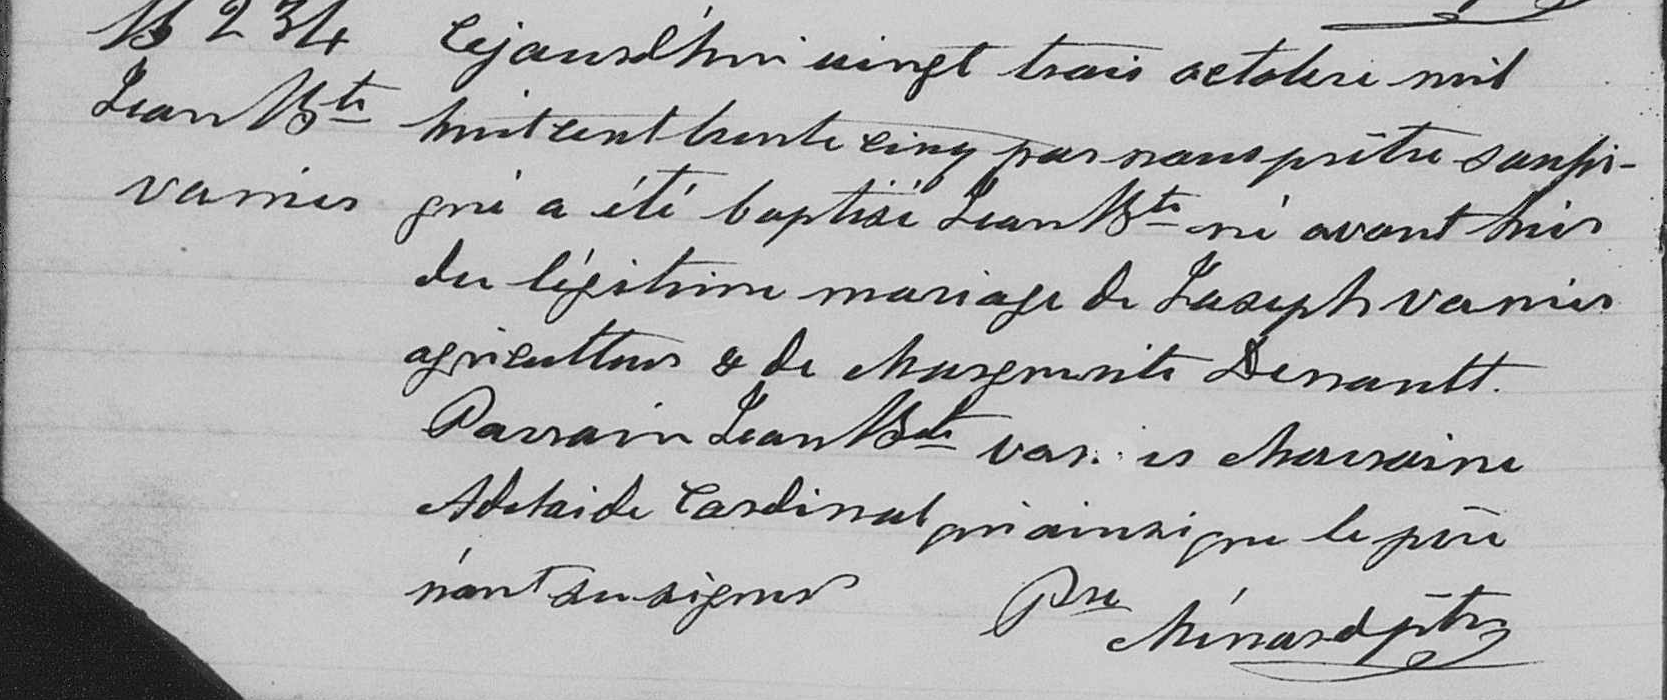 B 234
Jean Bte
vanier
Cejourd'hui vingt trois octobre mil
huit cent trente cinq par nous prêtre soussi-
gné a été baptisé Jean Bte né avant hier
du légitime mariage de Joseph vanier
agriculteur & de Marguerite Denault.
Parrain Jean Bte van er Marraine
Adelaide Cardinal qui ainsi que le père
n'ont su signer
Pre Ménard ptre